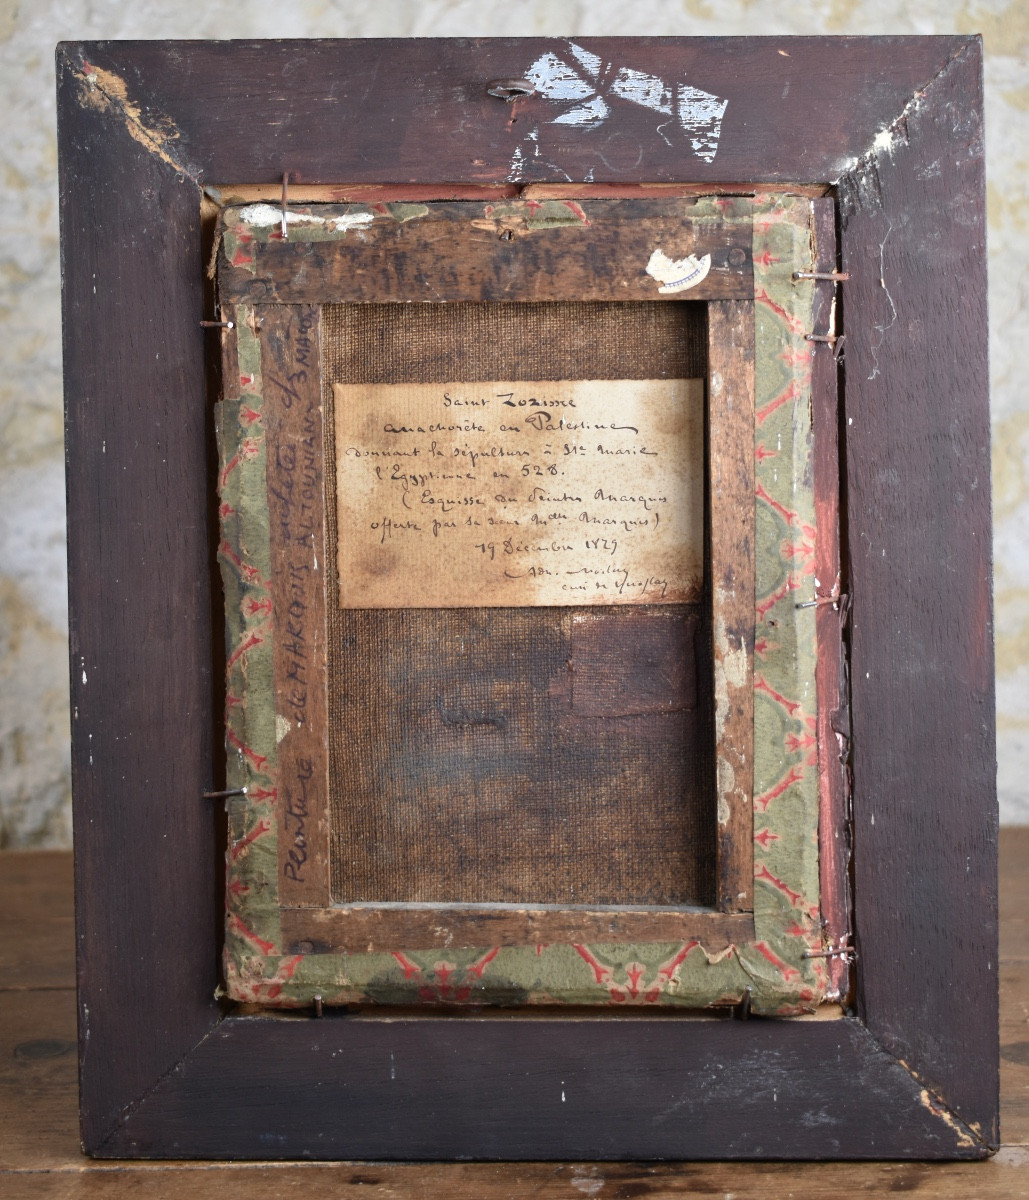 Saint Zozisme
anachorète en Palestine
Donnant la sépulture à Ste Marie
l'Egyptienne en 528.
(Esquisse du Peintre Marquis
offerte par sa sœur Mdlle Marquis)
19 Décembre 1829
curé de
Peinture de MARQUIS
ALTOUNIAN 3 MAI